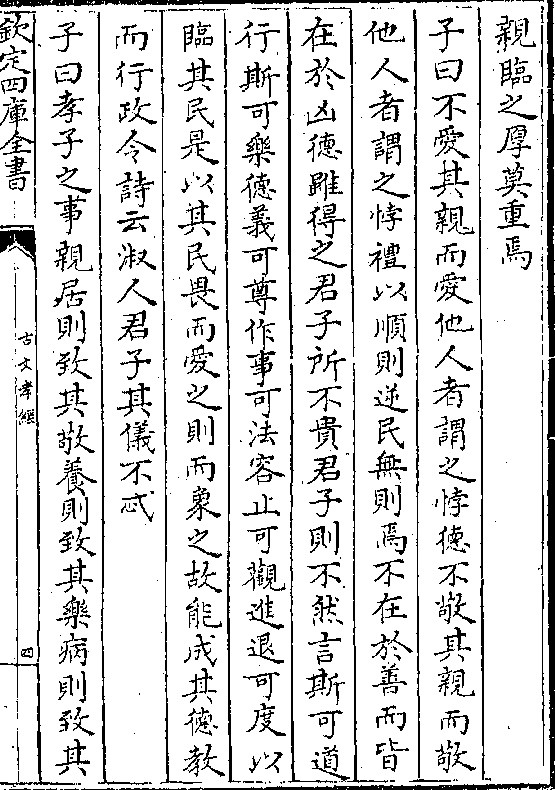 親臨之厚莫重焉
子曰不愛其親而愛他人者謂之悖德不敬其親而敬
他人者謂之悖禮以順則逆民無則焉不在於善而皆
在於凶德雖得之君子所不貴君子則不然言斯可道
行斯可樂德義可尊作事可法容止可觀進退可度以
臨其民是以其民畏而愛之則而象之故能成其德教
而行政令詩云淑人君子其儀不忒
子曰孝子之事親居則致其敬養則致其樂病則致其
欽定四庫全書
古文孝經
四